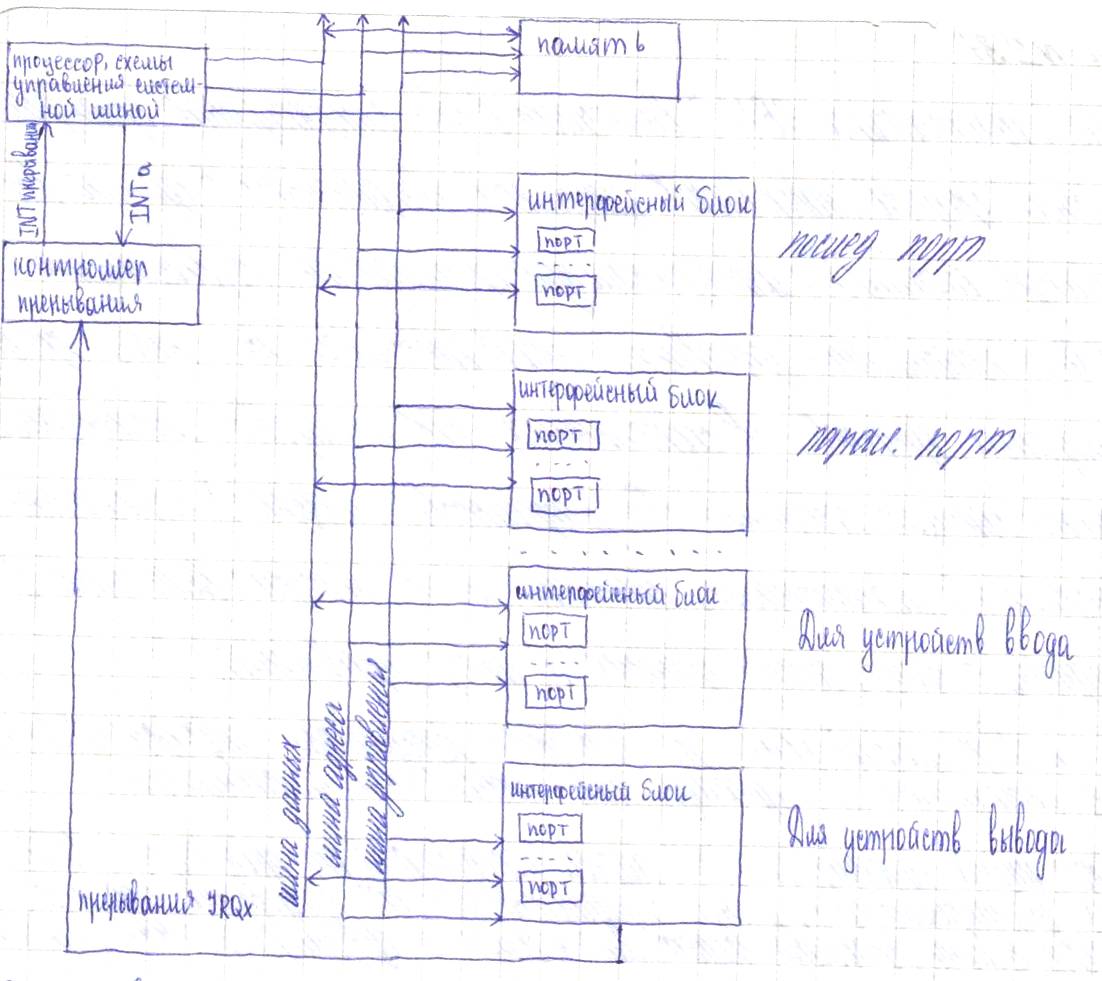 память
процессор, схемы
управления систем-
ной шиной
INT прерывания
INTa
контроллер
прерывания
интерфейсный блок
порт
порт
послед порт
интерфейсный блок
порт
порт
парал. порт
интерфейсный блок
порт
порт
Для устройств ввода
шина данных
шина адреса
шина управления
интерфейсный блок
порт
порт
Для устройств вывода
прерывания IRQx